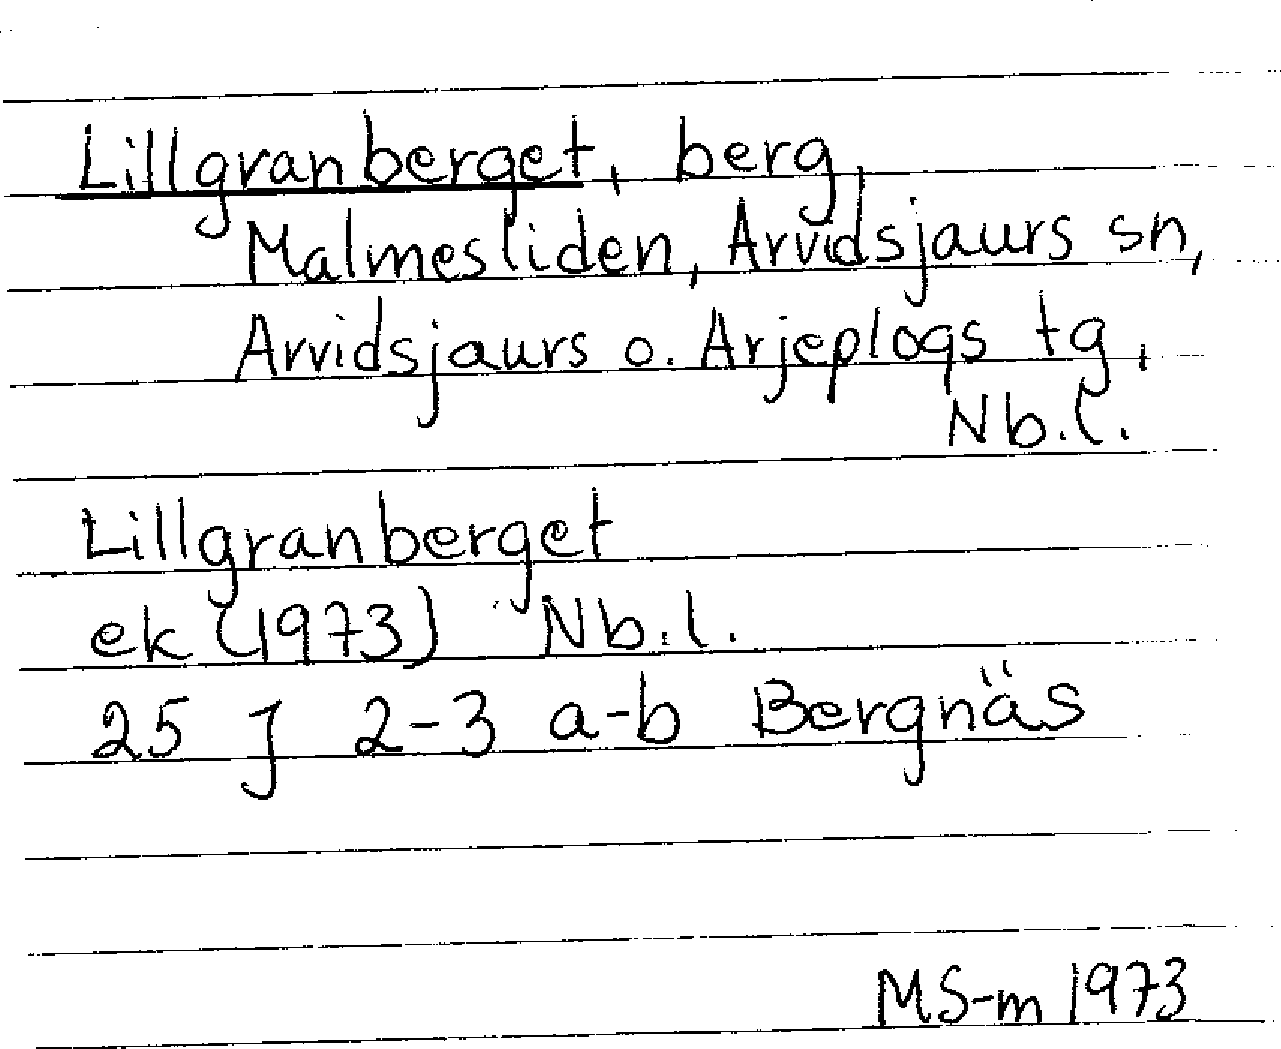 Lillgranberget, berg,
Malmesliden, Arvidsjaurs sn,
Arvidsjaurs o. Arjeplogs tg,
Nb.l.
Lillgranberget
ek (1973) Nb.l.
25 J 2-3 a-b Bergnäs
MS-m 1973